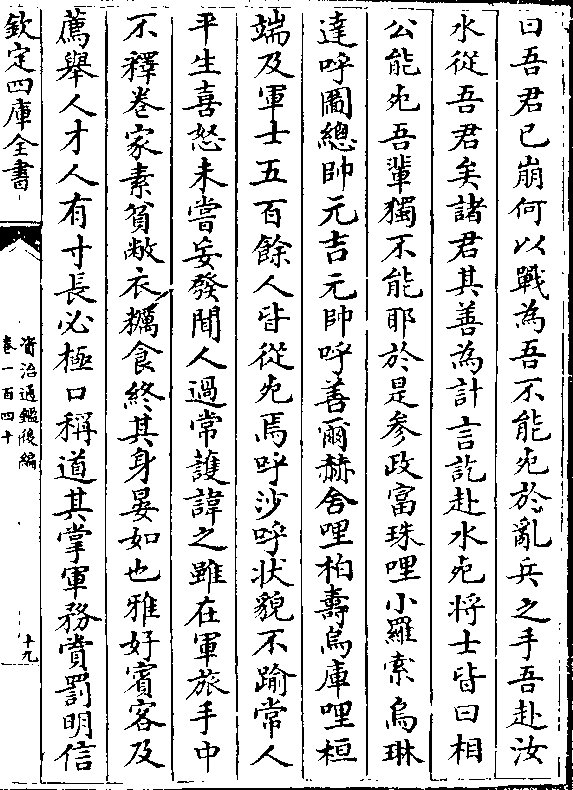 曰吾君已崩何以戰為吾不能死於亂兵之手吾赴汝
水從吾君矣諸君其善為計言訖赴水死将士皆曰相
公能死吾輩獨不能耶於是參政富珠哩小羅索烏琳
達呼圖總帥元吉元帥呼善爾赫舍哩柏壽烏庫哩桓
端及軍士五百餘人皆從死焉呼沙呼狀貌不踰常人
平生喜怒未嘗妄發聞人過常護諱之雖在軍旅手中
不釋卷家素貧敝衣糲食終其身晏如也雅好賓客及
薦舉人才人有寸長必極口稱道其掌軍務賞罰明信
欽定四庫全書
資治通鑑後編
卷一百四十
十九